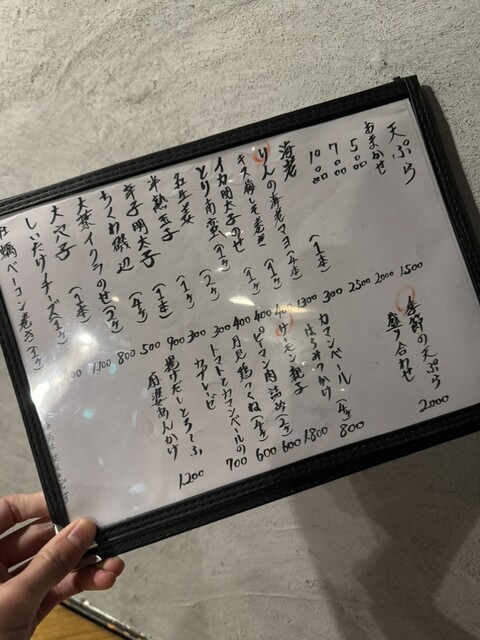 天ぷら
おまかせ
5品 1500
7品 2000
10品 2500
海老 (1本) 300
りんの海老マヨ (4本) 1300
キス梅しそ巻き (1ヶ) 400
イカ明太子のせ (1ヶ) 400
とり南蛮 (2ヶ) 400
紅生姜 (1ヶ) 300
半熟玉子 (1ヶ) 300
辛子明太子 900
ちくわ磯辺 (4ヶ) 500
大葉イクラのせ (2ヶ) 800
大穴子 (1本) 1100
しいたけチーズ (1ヶ)
牡蠣ベーコン巻き (1ヶ)
季節の天ぷら
盛り合わせ 2000
カマンベール
はちみつがけ (4ヶ) 800
サーモン親子 1800
ピーマン肉詰め (2ヶ) 600
月見鶏つくね (4ヶ) 600
トマトとカマンベールの
カプレーゼ 700
揚げだしとうふ
麻婆あんかけ 1200